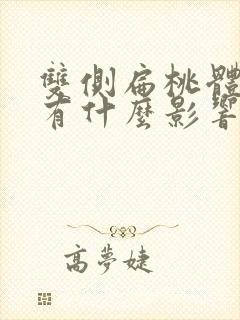 雙側扁桃體
有什麼影響
高夢婕